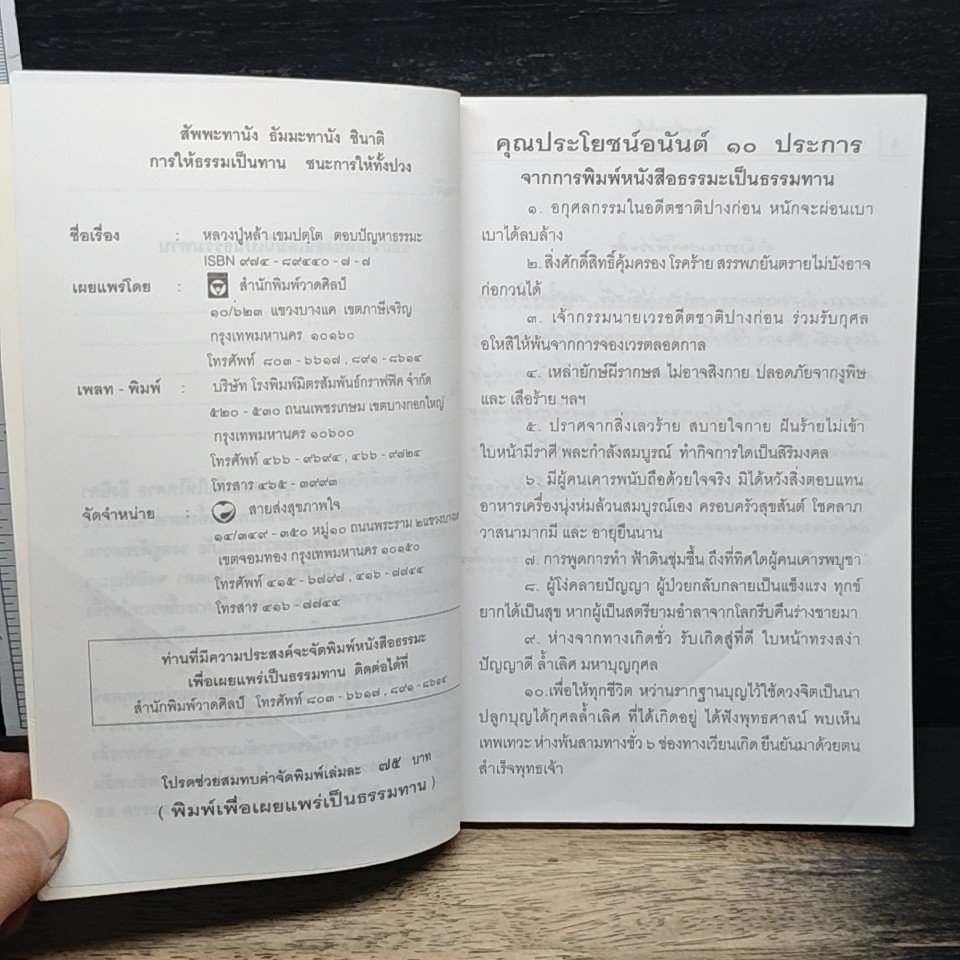 สัพพะทานัง ธัมมะทานัง ชินาติ
การให้ธรรมเป็นทาน ชนะการให้ทั้งปวง
ชื่อเรื่อง : หลวงปู่หล้า เขมปตฺโต ตอบปัญหาธรรมะ
ISBN ๙๗๔ - ๘๙๔๔๐ - ๗ - ๗
เผยแพร่โดย : สำนักพิมพ์วาดศิลป์
๑๐/๖๒๓ แขวงบางแค เขตภาษีเจริญ
กรุงเทพมหานคร ๑๐๑๖๐
โทรศัพท์ ๘๐๓ - ๖๖๑๗ , ๘๙๑ - ๘๖๑๔
เพลท - พิมพ์ : บริษัท โรงพิมพ์มิตรสัมพันธ์กราฟฟิค จำกัด
๕๒๐ - ๕๓๐ ถนนเพชรเกษม เขตบางกอกใหญ่
กรุงเทพมหานคร ๑๐๖๐๐
โทรศัพท์ ๔๖๖ - ๙๖๙๔ , ๔๖๖ - ๙๗๒๔
โทรสาร ๔๖๕ - ๓๙๙๓
จัดจำหน่าย : สายส่งสุขภาพใจ
๑๔/๓๔๙ - ๓๕๐ หมู่๑๐ ถนนพระราม ๒แขวงบางมด
เขตจอมทอง กรุงเทพมหานคร ๑๐๑๕๐
โทรศัพท์ ๔๑๕ - ๖๗๙๗ , ๔๑๖ - ๗๗๔๔
โทรสาร ๔๑๖ - ๗๗๔๔
ท่านที่มีความประสงค์จะจัดพิมพ์หนังสือธรรมะ
เพื่อเผยแพร่เป็นธรรมทาน ติดต่อได้ที่
สำนักพิมพ์วาดศิลป์ โทรศัพท์ ๘๐๓ - ๖๖๑๗ , ๘๙๑ - ๘๖๑๔
โปรดช่วยสมทบค่าจัดพิมพ์เล่มละ ๗๕ บาท
( พิมพ์เพื่อเผยแพร่เป็นธรรมทาน )
คุณประโยชน์อนันต์ ๑๐ ประการ
จากการพิมพ์หนังสือธรรมะเป็นธรรมทาน
๑. อกุศลกรรมในอดีตชาติปางก่อน หนักจะผ่อนเบา
เบาได้ลบล้าง
๒. สิ่งศักดิ์สิทธิ์คุ้มครอง โรคร้าย สรรพภยันตรายไม่บังอาจ
ก่อกวนได้
๓. เจ้ากรรมนายเวรอดีตชาติปางก่อน ร่วมรับกุศล
อโหสิให้พ้นจากการจองเวรตลอดกาล
๔. เหล่ายักษ์ผีรากษส ไม่อาจสิงกาย ปลอดภัยจากงูพิษ
และ เสือร้าย ฯลฯ
๕. ปราศจากสิ่งเลวร้าย สบายใจกาย ฝันร้ายไม่เข้า
ใบหน้ามีราศี พละกำลังสมบูรณ์ ทำกิจการใดเป็นสิริมงคล
๖. มีผู้คนเคารพนับถือด้วยใจจริง มิได้หวังสิ่งตอบแทน
อาหารเครื่องนุ่งห่มล้วนสมบูรณ์เอง ครอบครัวสุขสันต์ โชคลาภ
วาสนามากมี และ อายุยืนนาน
๗. การพูดการทำ ฟ้าดินชุ่มชื้น ถึงที่ทิศใดผู้คนเคารพบูชา
๘. ผู้โง่คลายปัญญา ผู้ป่วยกลับกลายเป็นแข็งแรง ทุกข์
ยากได้เป็นสุข หากผู้เป็นสตรียามอำลาจากโลกรีบคืนร่างชายมา
๙. ห่างจากทางเกิดชั่ว รับเกิดสู่ที่ดี ใบหน้าทรงสง่า
ปัญญาดี ล้ำเลิศ มหาบุญกุศล
๑๐.เพื่อให้ทุกชีวิต หว่านรากฐานบุญไว้ใช้ดวงจิตเป็นนา
ปลูกบุญได้กุศลล้ำเลิศ ที่ได้เกิดอยู่ ได้ฟังพุทธศาสน์ พบเห็น
เทพเทวะ ห่างพ้นสามทางชั่ว ๖ ช่องทางเวียนเกิด ยืนยันมาด้วยตน
สำเร็จพุทธเจ้า